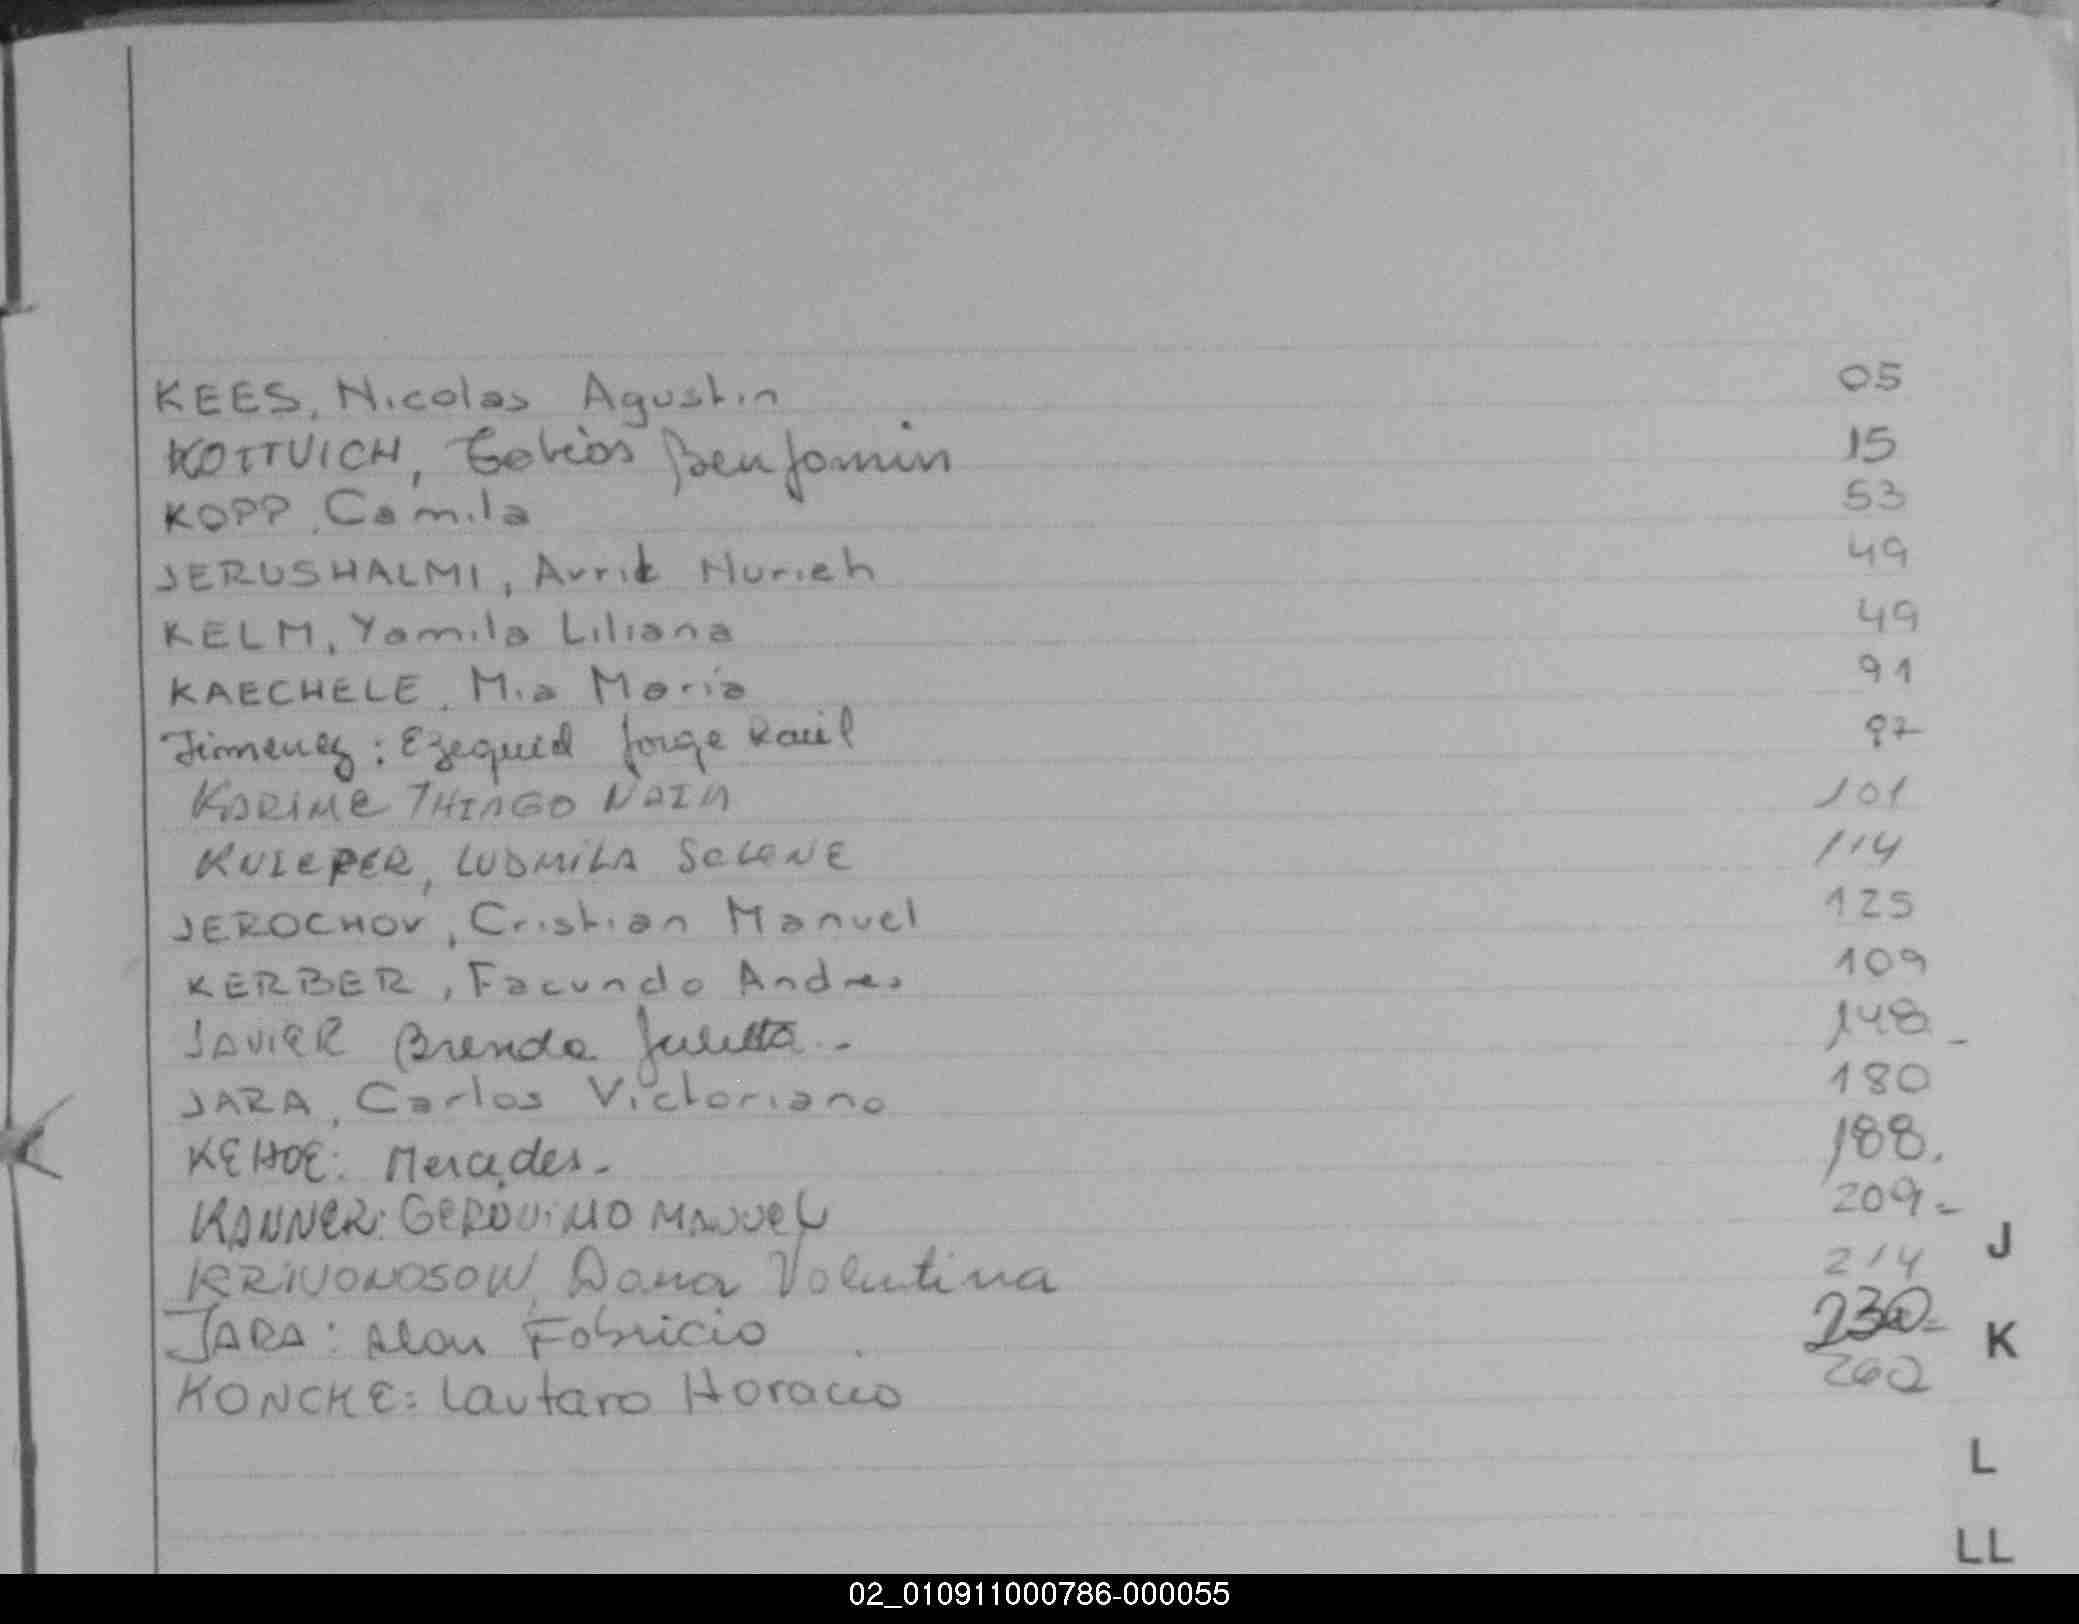 KEES, Nicolas Agustin 05
KOTTVICH, Tobias Benjamin 15
KOPP, Camila 53
JERUSHALMI, Avrik Nurieh 49
KELM, Yamila Liliana 49
KAECHELE, Mia María 91
Jimenez: Ezequiel Jorge Raúl 97
KARIME THIAGO NAIM 101
KUIEPER, LUDMILA SELENE 114
JEROCHOV, Cristian Manuel 125
KERBER, Facundo Andres 109
JAVIER Brenda Julieta.- 148-
JARA, Carlos Victoriano 180
KEHOE: Mercedes.- 188.
KANNER: GERÓNIMO MANUEL 209.-
KRIVONOSOW, Dana Valentina 214
J
JARA: Alan Fabricio 230-
K
KONCKE: Lautaro Horacio 260
L
LL
02_010911000786-000055